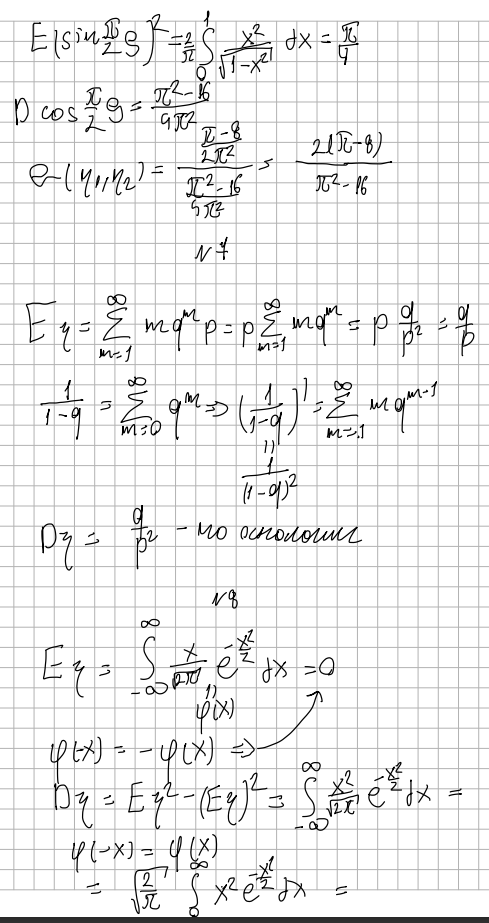 E(sin π/2 ξ)² = 2/π ∫₀¹ x²/√(1-x²) dx = π/4
D cos π/2 ξ = (π²-16)/(4π²)
ρ(η₁,η₂) = ((π-8)/(2π²))/((π²-16)/(4π²)) = 2(π-8)/(π²-16)
№7
Eη = ∑_{m=1}^∞ mq^m p = p ∑_{m=1}^∞ mq^m = p q/p² = q/p
1/(1-q) = ∑_{m=0}^∞ q^m => (1/(1-q))' = ∑_{m=1}^∞ mq^{m-1}
||
1/(1-q)²
Dη = q/p² - по аналогии
№8
Eη = ∫_{-∞}^∞ x/√(2π) e^{-x²/2} dx = 0
||
φ(x)
φ(-x) = -φ(x) =>
Dη = Eη² - (Eη)² = ∫_{-∞}^∞ x²/√(2π) e^{-x²/2} dx =
φ(-x) = φ(x)
= √(2/π) ∫₀^∞ x² e^{-x²/2} dx =